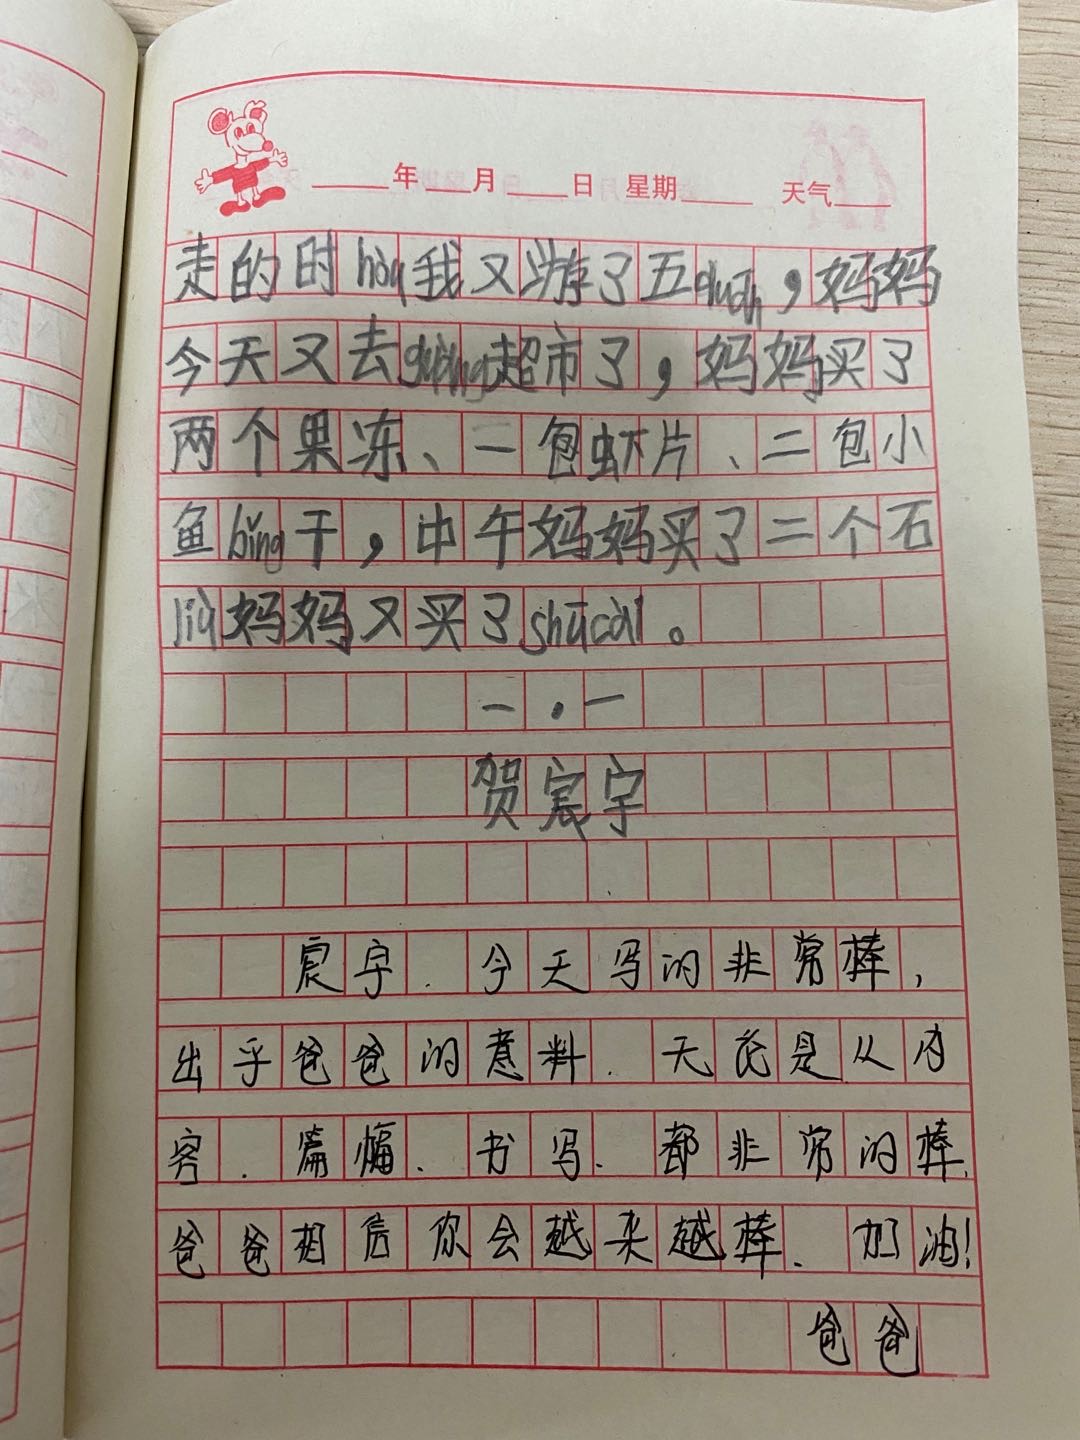 年 月 日 星期 天气
走的时hòu我又游了五quān，妈妈
今天又去guàng超市了，妈妈买了
两个果冻、一包虾片、二包小
鱼bǐng干，中午妈妈买了二个石
liù妈妈又买了shūcài。
一.一
贺宸宇
宸宇.今天写的非常棒，
出乎爸爸的意料.无论是从内
容.篇幅.书写.都非常的棒.
爸爸相信你会越来越棒.加油!
爸爸